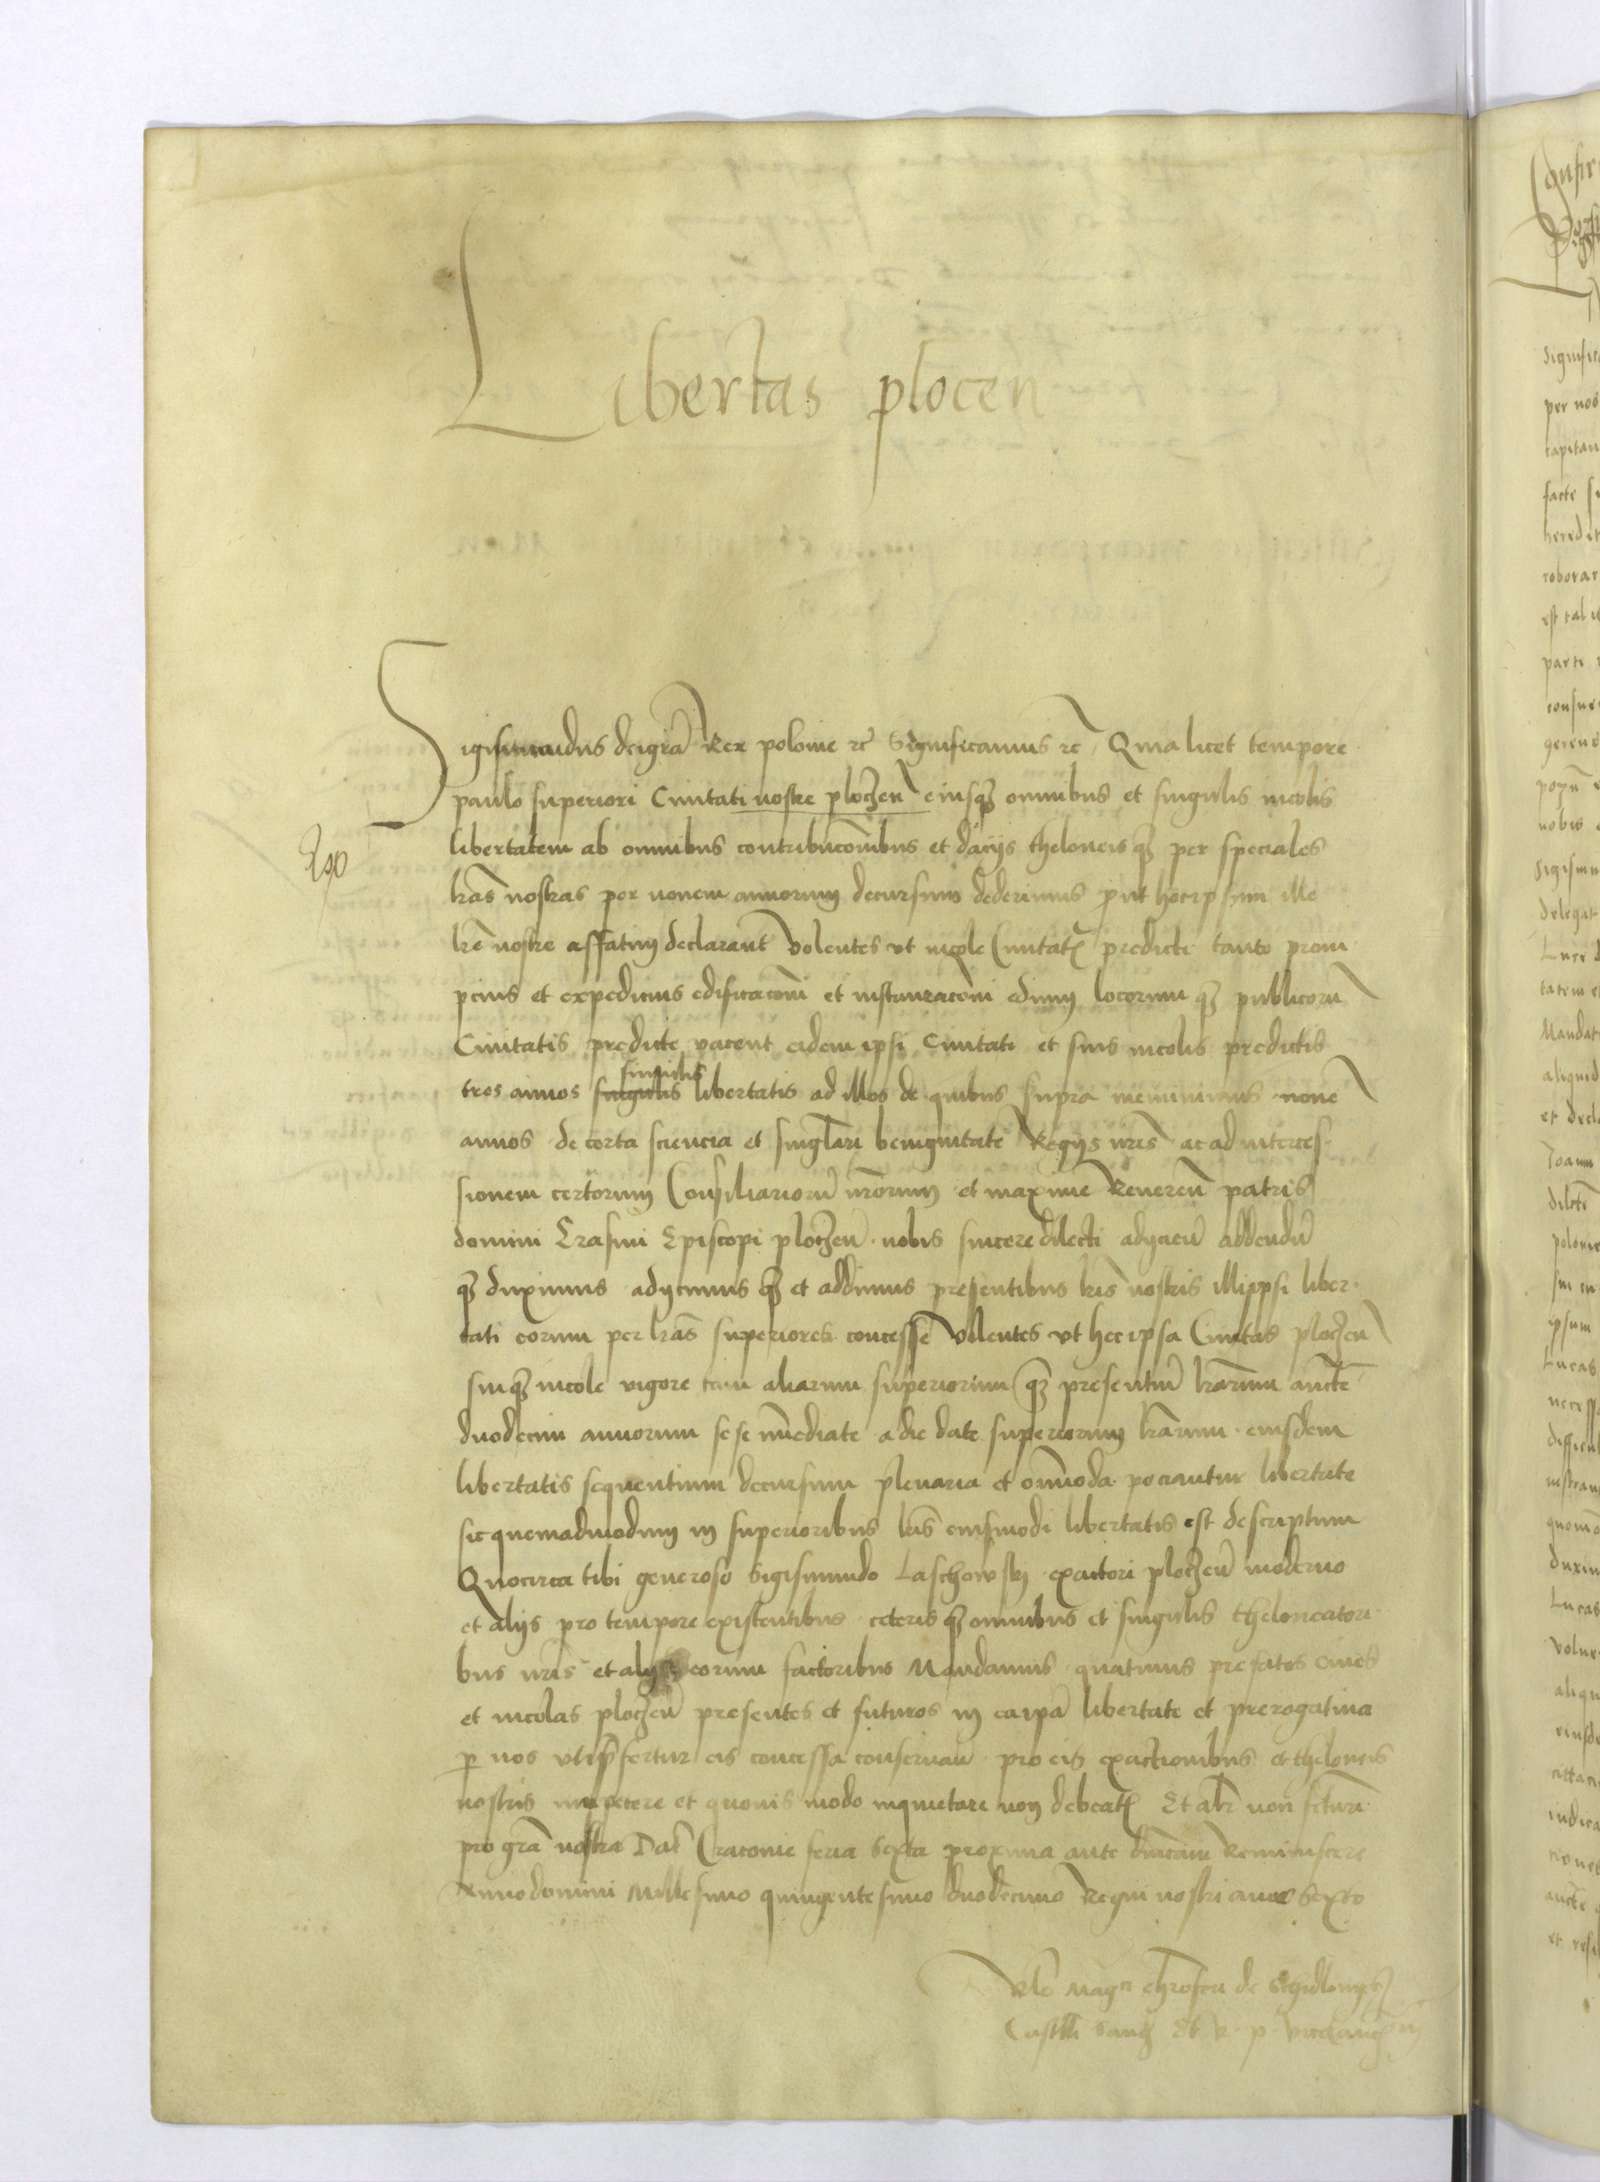 Libertas plocen
Sigismundus dei grã Rex polonie rc̃ Significamus rc̃ Quia licet tempore
paulo superiori Civitati nostre ploczeñ eiusqꝫ omnibus et singulis incolis
libertatem ab omnibus contribucõnibus et dacys theloneisqꝫ per speciales
lrãs nostras per novem annorum decursum dederimus prout hoc ipsum ille
lrẽ nostre affatim declarant Volentes ut incole Civitatꝭ predicte tanto prom
pcius et expedicius edificacõni et instauracõni edium locorumqꝫ publicorũ
Civitatis predicte vacent eidem ipsi Civitati et suis incolis predictis
similis
tres annos singulis libertatis ad illos de quibus supra meminimus novẽ
annos de certa sciencia et singlari benignitate Regys nris̃ ac ad interces
sionem certorum Consiliariorũ nrõrum et maxime Reverẽn patris
domini Erasmi Episcopi ploczeñ nobis sincere dilecti adycieñ addendũ
qꝫ duximus adycimusqꝫ et addimus presentibus lris̃ nostris illi ipsi liber
tati eorum per lrãs superiores concesse Volentes ut hec ipsa Civitas ploczeñ
suiqꝫ incole vigore tam aliarum superiorum qꝫ presentiũ lrãrum aucte
duodecim annorum sese immediate a die date superiorum lrãrum eiusdem
libertatis sequentium decursum plenaria et omnimoda pociantur libertate
sic quemadmodum in superioribus lris̃ eiusmodi libertatis est descriptum
Quocirca tibi generoso Sigismundo Laschowsky exactori ploczeñ moderno
et alys pro tempore existentibus ceterisqꝫ omnibus et singulis theloneatori
bus nris̃ et alys eorum factoribus Mandamus quatinus prefatos cives
et incolas ploczeñ presentes et futuros in ea ipã libertate et prerogativa
p nos uti prefertur eis concessa conservañ pro eis exactionibus et theloneis
nostris impetere et quovis modo inquietare non debeatꝭ Et alr̃ non fcturi
pro grã nostra Dat̃ Cracovie feria Sexta proxima ante dnĩcam Reminiscere
Anno domini Millesimo quingentesimo duodecimo Regni nostri anno Sexto
Rlõ Magci Chrõferi de Schidlowyecz
Castlli Sand Et R p vicecanc